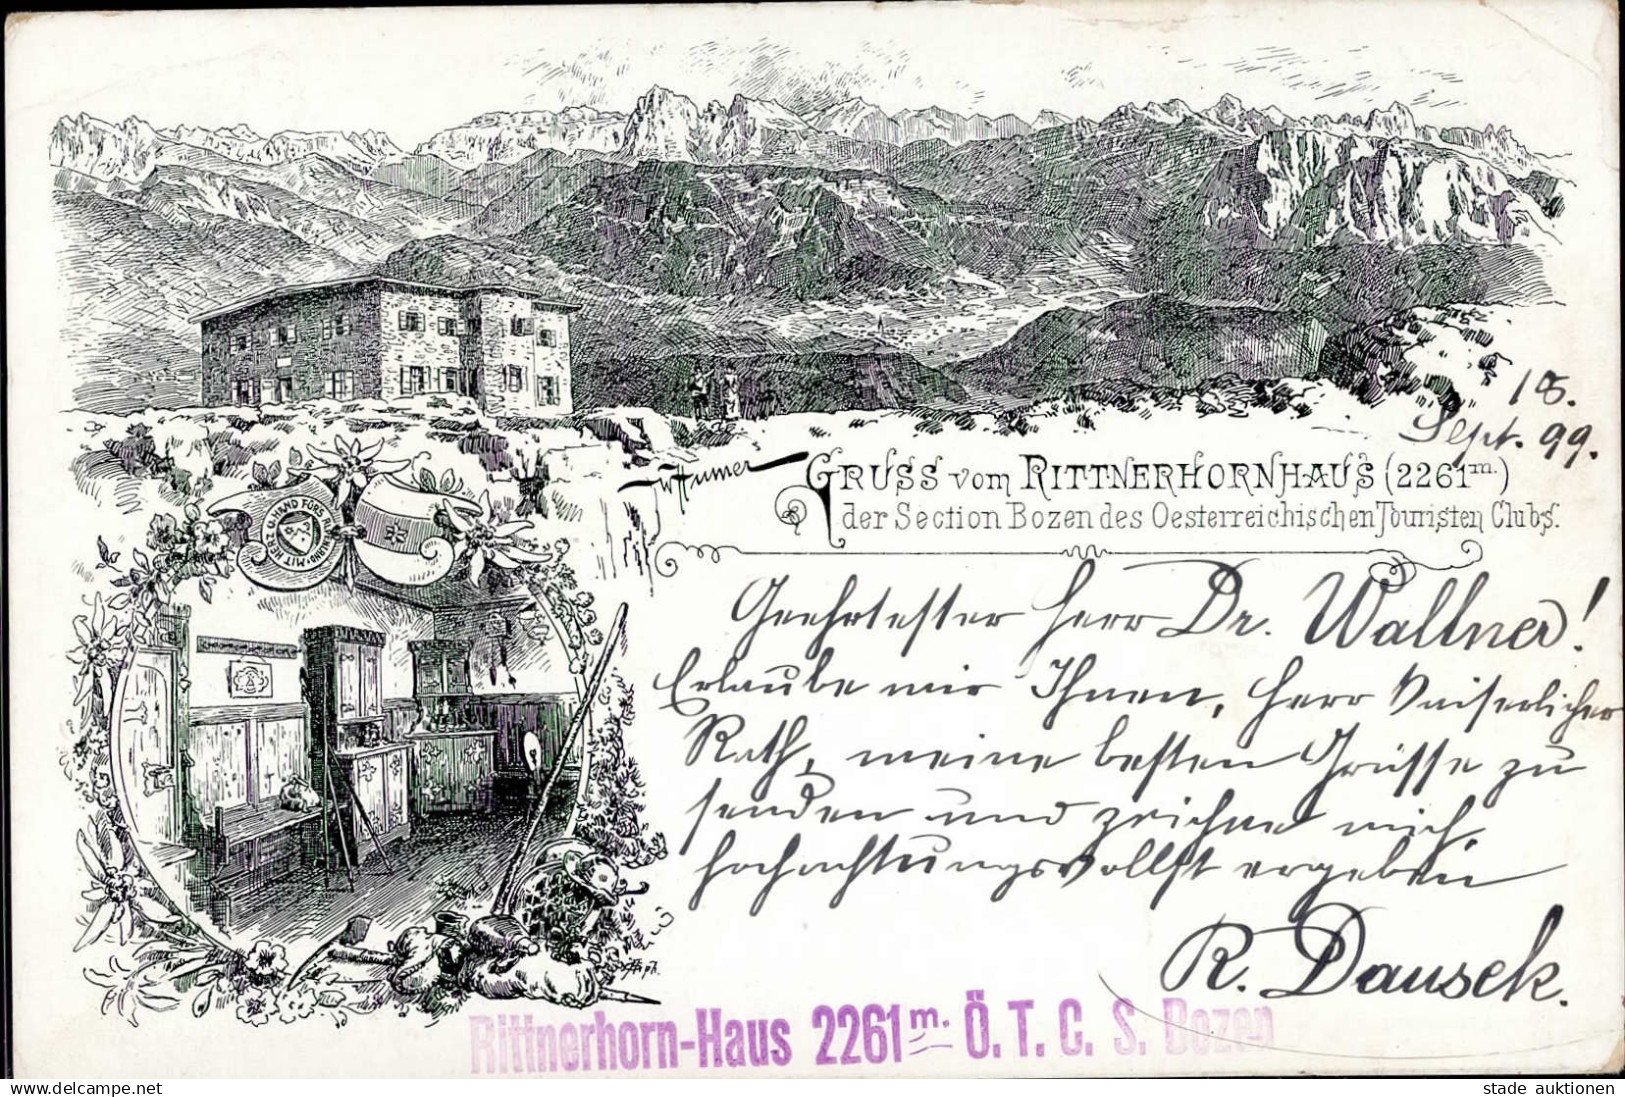 18.
Sept. 99.
GRUSS vom RITTNERHORNHAUS (2261m.)
der Section Bozen des Oesterreichischen Touristen Clubs.
MIT HERZ U. HAND FÜRS
Geehrtester Herr Dr. Wallner!
Erlaube mir Ihnen, Herr Kaiserlicher
Rath, meine besten Grüsse zu
senden und zeichne mich
hochachtungsvollst ergeben
R. Dausek.
Rittnerhorn-Haus 2261m. Ö. T. C. S. Bozen
stade auktionen